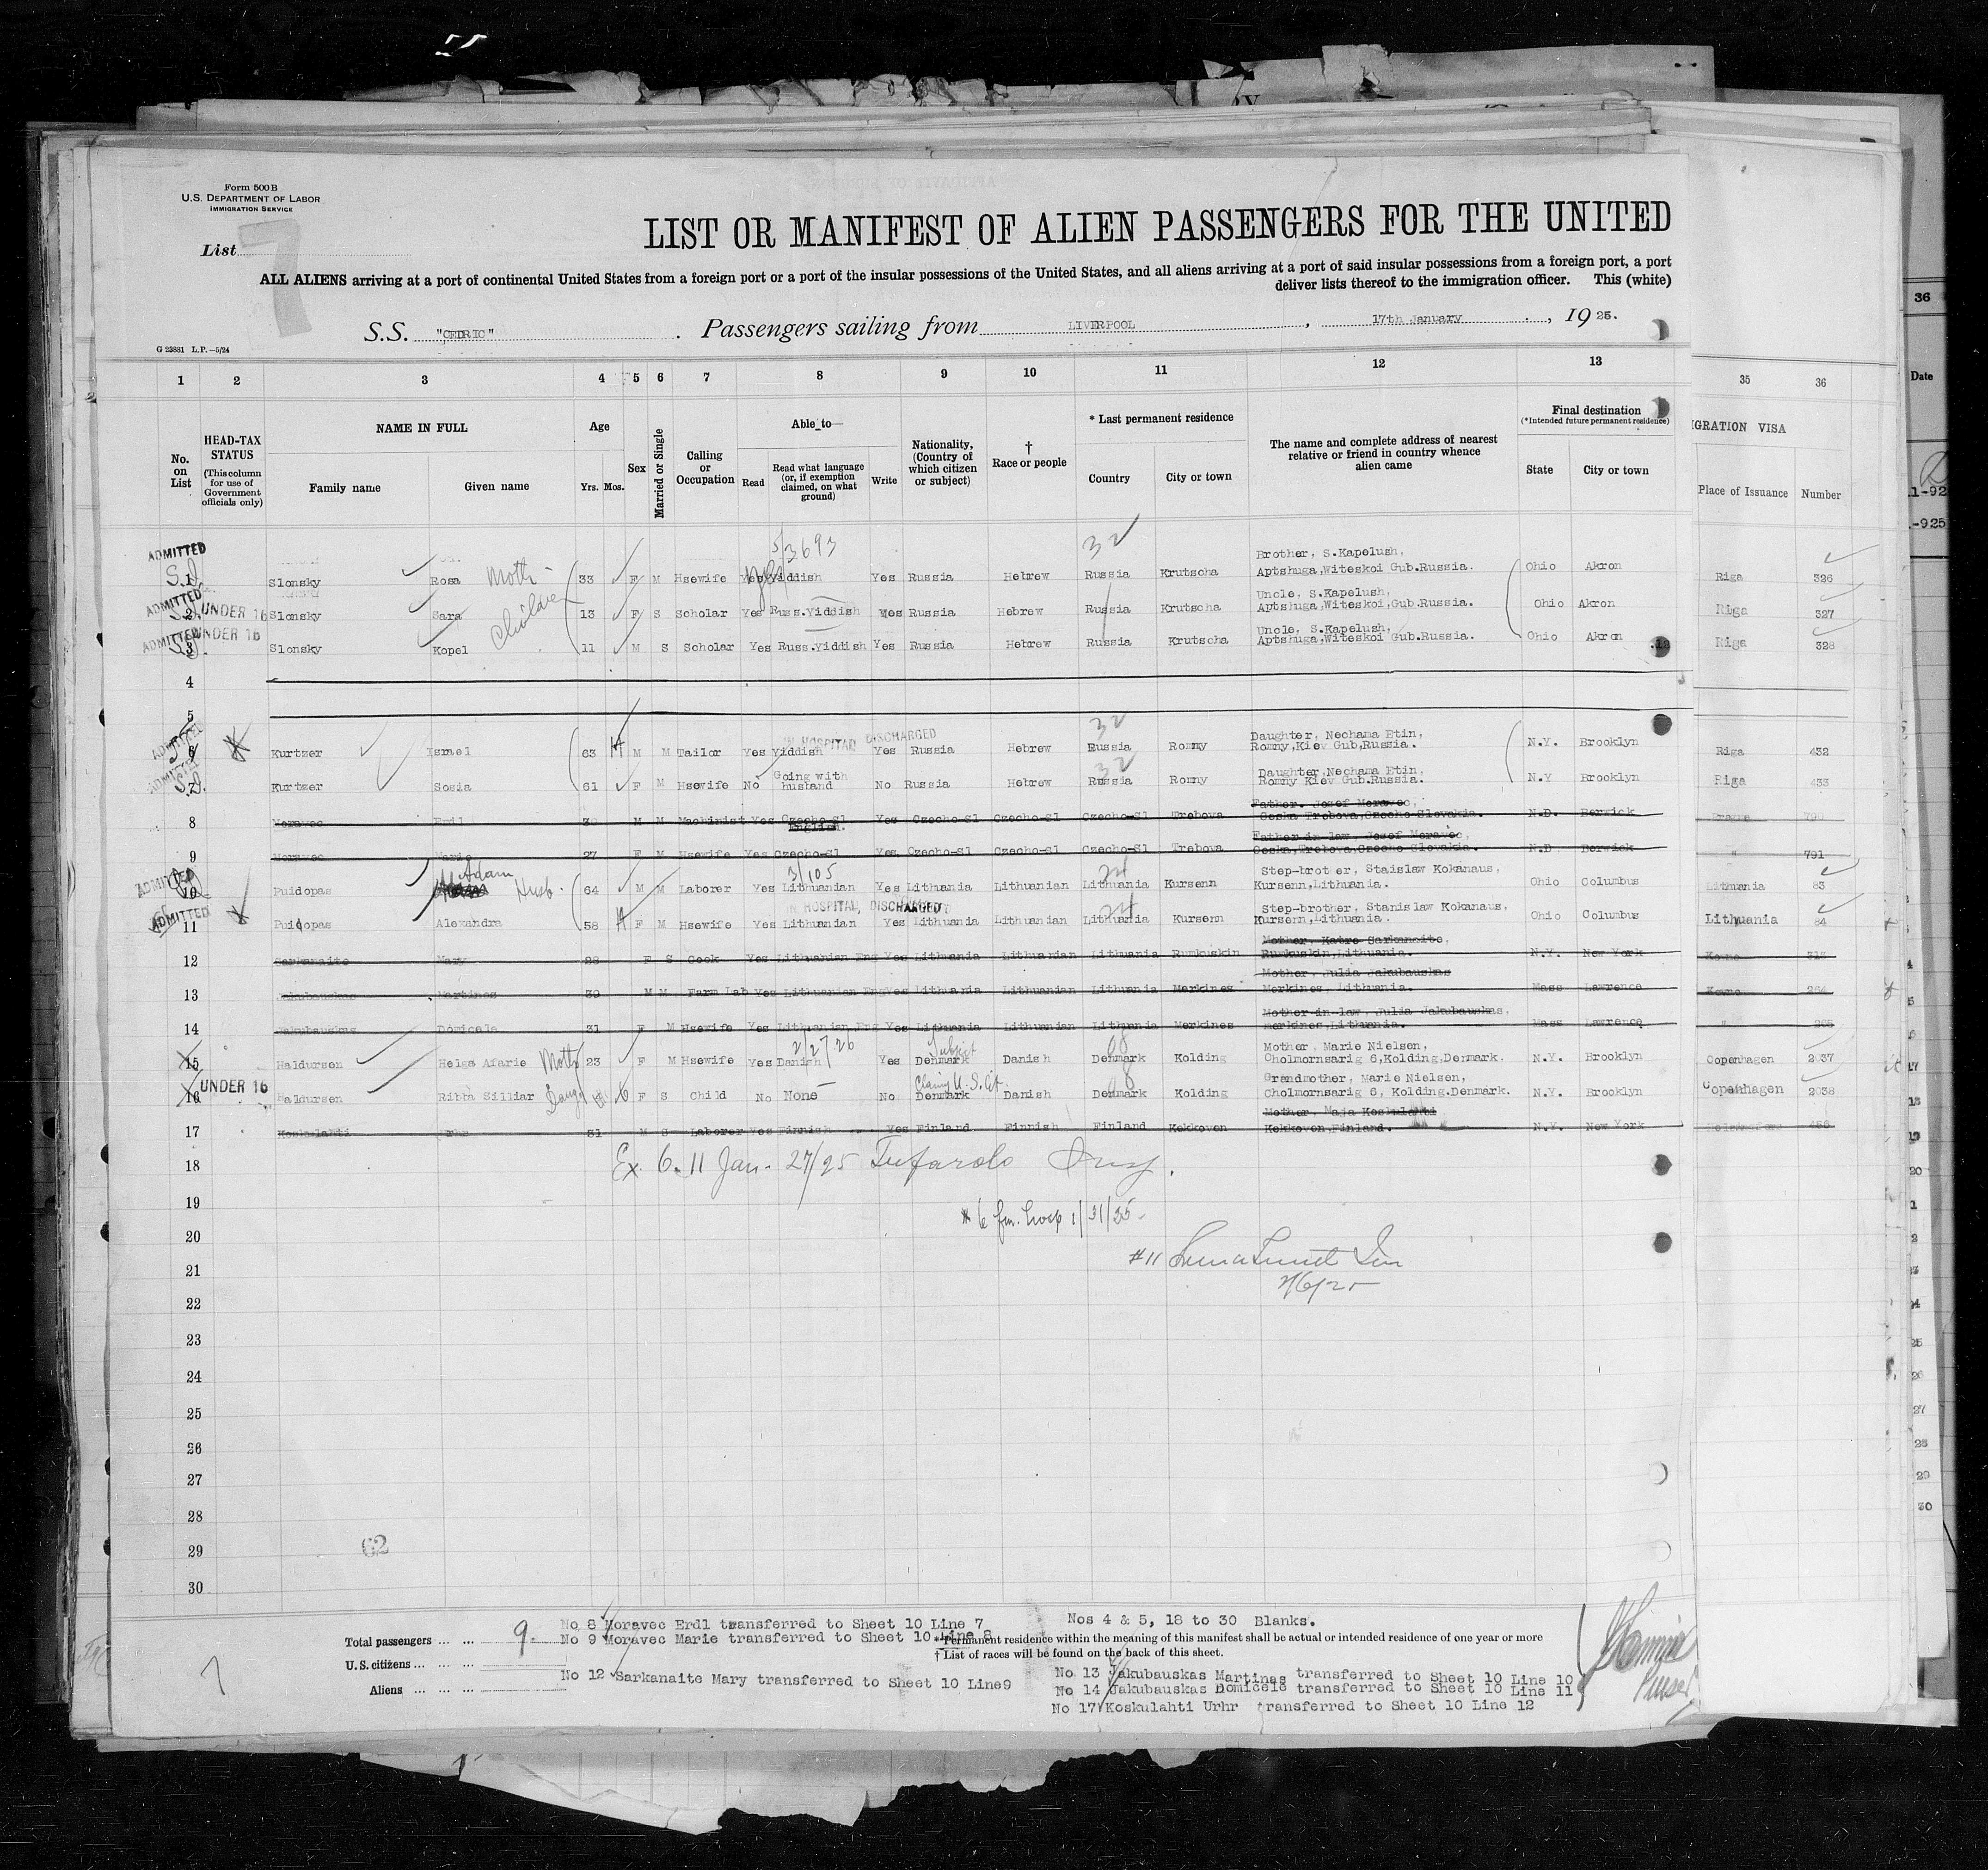 Form 500 B
U.S. DEPARTMENT OF LABOR
IMMIGRATION SERVICE
List 7
LIST OR MANIFEST OF ALIEN PASSENGERS FOR THE UNITED
ALL ALIENS arriving at a port of continental United States from a foreign port or a port of the insular possessions of the United States, and all aliens arriving at a port of said insular possessions from a foreign port, a port
deliver lists thereof to the immigration officer. This (white)
S.S. "CEDRIC" . Passengers sailing from LIVERPOOL , 17th January , 1925.
G 23881 L.P.—5/24
1 2 3 4 5 6 7 8 9 10 11 12 13 35 36
No. on List
HEAD-TAX STATUS
(This column for use of Government officials only)
NAME IN FULL
Family name Given name
Age
Yrs. Mos.
Sex
Married or Single
Calling or Occupation
Able to—
Read
Read what language (or, if exemption claimed, on what ground)
Write
Nationality, (Country of which citizen or subject)
† Race or people
* Last permanent residence
Country City or town
The name and complete address of nearest relative or friend in country whence alien came
Final destination
(*Intended future permanent residence)
State City or town
IGRATION VISA
Place of Issuance Number
36
Date
5/3693 32
ADMITTED Brother, S.Kapelush,
1 Slonsky Rosa Moth 33 F M Hsewife Yes Yiddish Yes Russia Hebrew Russia Krutscha Aptshuga,Witeskoi Gub.Russia. Ohio Akron Riga 326
ADMITTED Uncle, S.Kapelush,
2 UNDER 16 Slonsky Sara 13 F S Scholar Yes Russ.Yiddish Yes Russia Hebrew Russia Krutscha Aptshuga,Witeskoi,Gub.Russia. Ohio Akron Riga 327
ADMITTED UNDER 16 Uncle, S.Kapelush,
3 Slonsky Kopel 11 M S Scholar Yes Russ.Yiddish Yes Russia Hebrew Russia Krutscha Aptshuga,Witeskoi Gub.Russia. Ohio Akron Riga 328
4
5
ADMITTED IN HOSPITAL DISCHARGED 32 Daughter, Nechama Etin,
6 Kurtzer Israel 63 M M Tailor Yes Yiddish Yes Russia Hebrew Russia Romny Romny,Kiev Gub,Russia. N.Y. Brooklyn Riga 432
32 Daughter,Nechama Etin,
7 Kurtzer Sosia 61 F M Hsewife No Going with husband No Russia Hebrew Russia Romny Romny Kiev Gub.Russia. N.Y Brooklyn Riga 433
Father. Josef Moravec,
8 Moravec Emil 30 M M Machinist Yes Czecho-Sl English. Yes Czecho-Sl Czecho-Sl Czecho-Sl Trebova Ceska Trebova,Czecho Slovakia. N.D. Berwick Prague
Father-in-law, Josef Moravec,
9 Moravec Marie 27 F M Hsewife Yes Czecho-Sl Yes Czecho-Sl Czecho-Sl Czecho-Sl Trebova Ceska,Trebova,Czecho Slovakia. N.D Berwick " 791
ADMITTED Adam 3/105 24 Step-brother, Staislaw Kokanaus,
10 Puidopas Husb. 64 M M Laborer Yes Lithuanian Yes Lithuania Lithuanian Lithuania Kursenn Kursenn,Lithuania. Ohio Columbus Lithuania 83
ADMITTED IN HOSPITAL, DISCHARGED 24 Step-brother, Stanislaw Kokanaus,
11 Puidopas Alexandra 58 F M Hsewife Yes Lithuanian Yes Lithuania Lithuanian Lithuania Kursenn Kursenn,Lithuania. Ohio Columbus Lithuania 84
Mother, Katre Sarkanaite,
12 Sarkanaite Mary 28 F S Cook Yes Lithuanian Eng Yes Lithuania Lithuanian Lithuania Rumkuskin Rumkuskin,Lithuania. N.Y. New York Kowno
Mother, Julia Jakubauskas
13 Jakubauskas Martinas 39 M M Farm Lab Yes Lithuanian Eng Yes Lithuania Lithuanian Lithuania Merkines Merkines, Lithuania. Mass Lawrence Kowno 264
Mother-in-law, Julia Jakubauskas,
14 Jakubauskas Domicela 31 F M Hsewife Yes Lithuanian,Eng Yes Lithuania Lithuanian Lithuania Merkines merkines,Lithuania. Mass Lawrence " 265
2/27/26 Subject Mother, Marie Nielsen,
15 Haldursen Helga Afarie Moth 23 F M Hsewife Yes Danish Yes Denmark Danish Denmark Kolding Cholmornsarig 6,Kolding,Denmark. N.Y. Brooklyn Copenhagen 2037
UNDER 16 Claims U.S. Cit Grandmother, Marie Nielsen,
16 Haldursen Ribba Silliar Daug F S Child No None No Denmark Danish Denmark Kolding Cholmornsarig 6, Kolding.Denmark. N.Y. Brooklyn Copenhagen 2038
Mother. Maja Koskulahti
17 Koskulahti Urhr 31 M S Laborer Yes Finnish Yes Finland Finnish Finland Kekkoven Kekkoven,Finland. N.Y. New York
18 Ex. 6-11 Jan. 27/25 Tufarolo Insp.
19 # 6 fm. Hosp 1/31/25-
20
21 #11
22 2/6/25
23
24
25
26
27
28
29 62
30
No 8 Moravec Erdl transferred to Sheet 10 Line 7 Nos 4 & 5, 18 to 30 Blanks.
Total passengers ... ... 9. No 9 Moravec Marie transferred to Sheet 10 Line 8
* Permanent residence within the meaning of this manifest shall be actual or intended residence of one year or more
† List of races will be found on the back of this sheet.
U.S. citizens ... ... ...
No 12 Sarkanaite Mary transferred to Sheet 10 Line9
Aliens ... ... ...
No 13 Jakubauskas Martinas transferred to Sheet 10 Line 10
No 14 Jakubauskas Domicele transferred to Sheet 10 Line 11
No 17 Koskulahti Urhr transferred to Sheet 10 Line 12
Purser
7